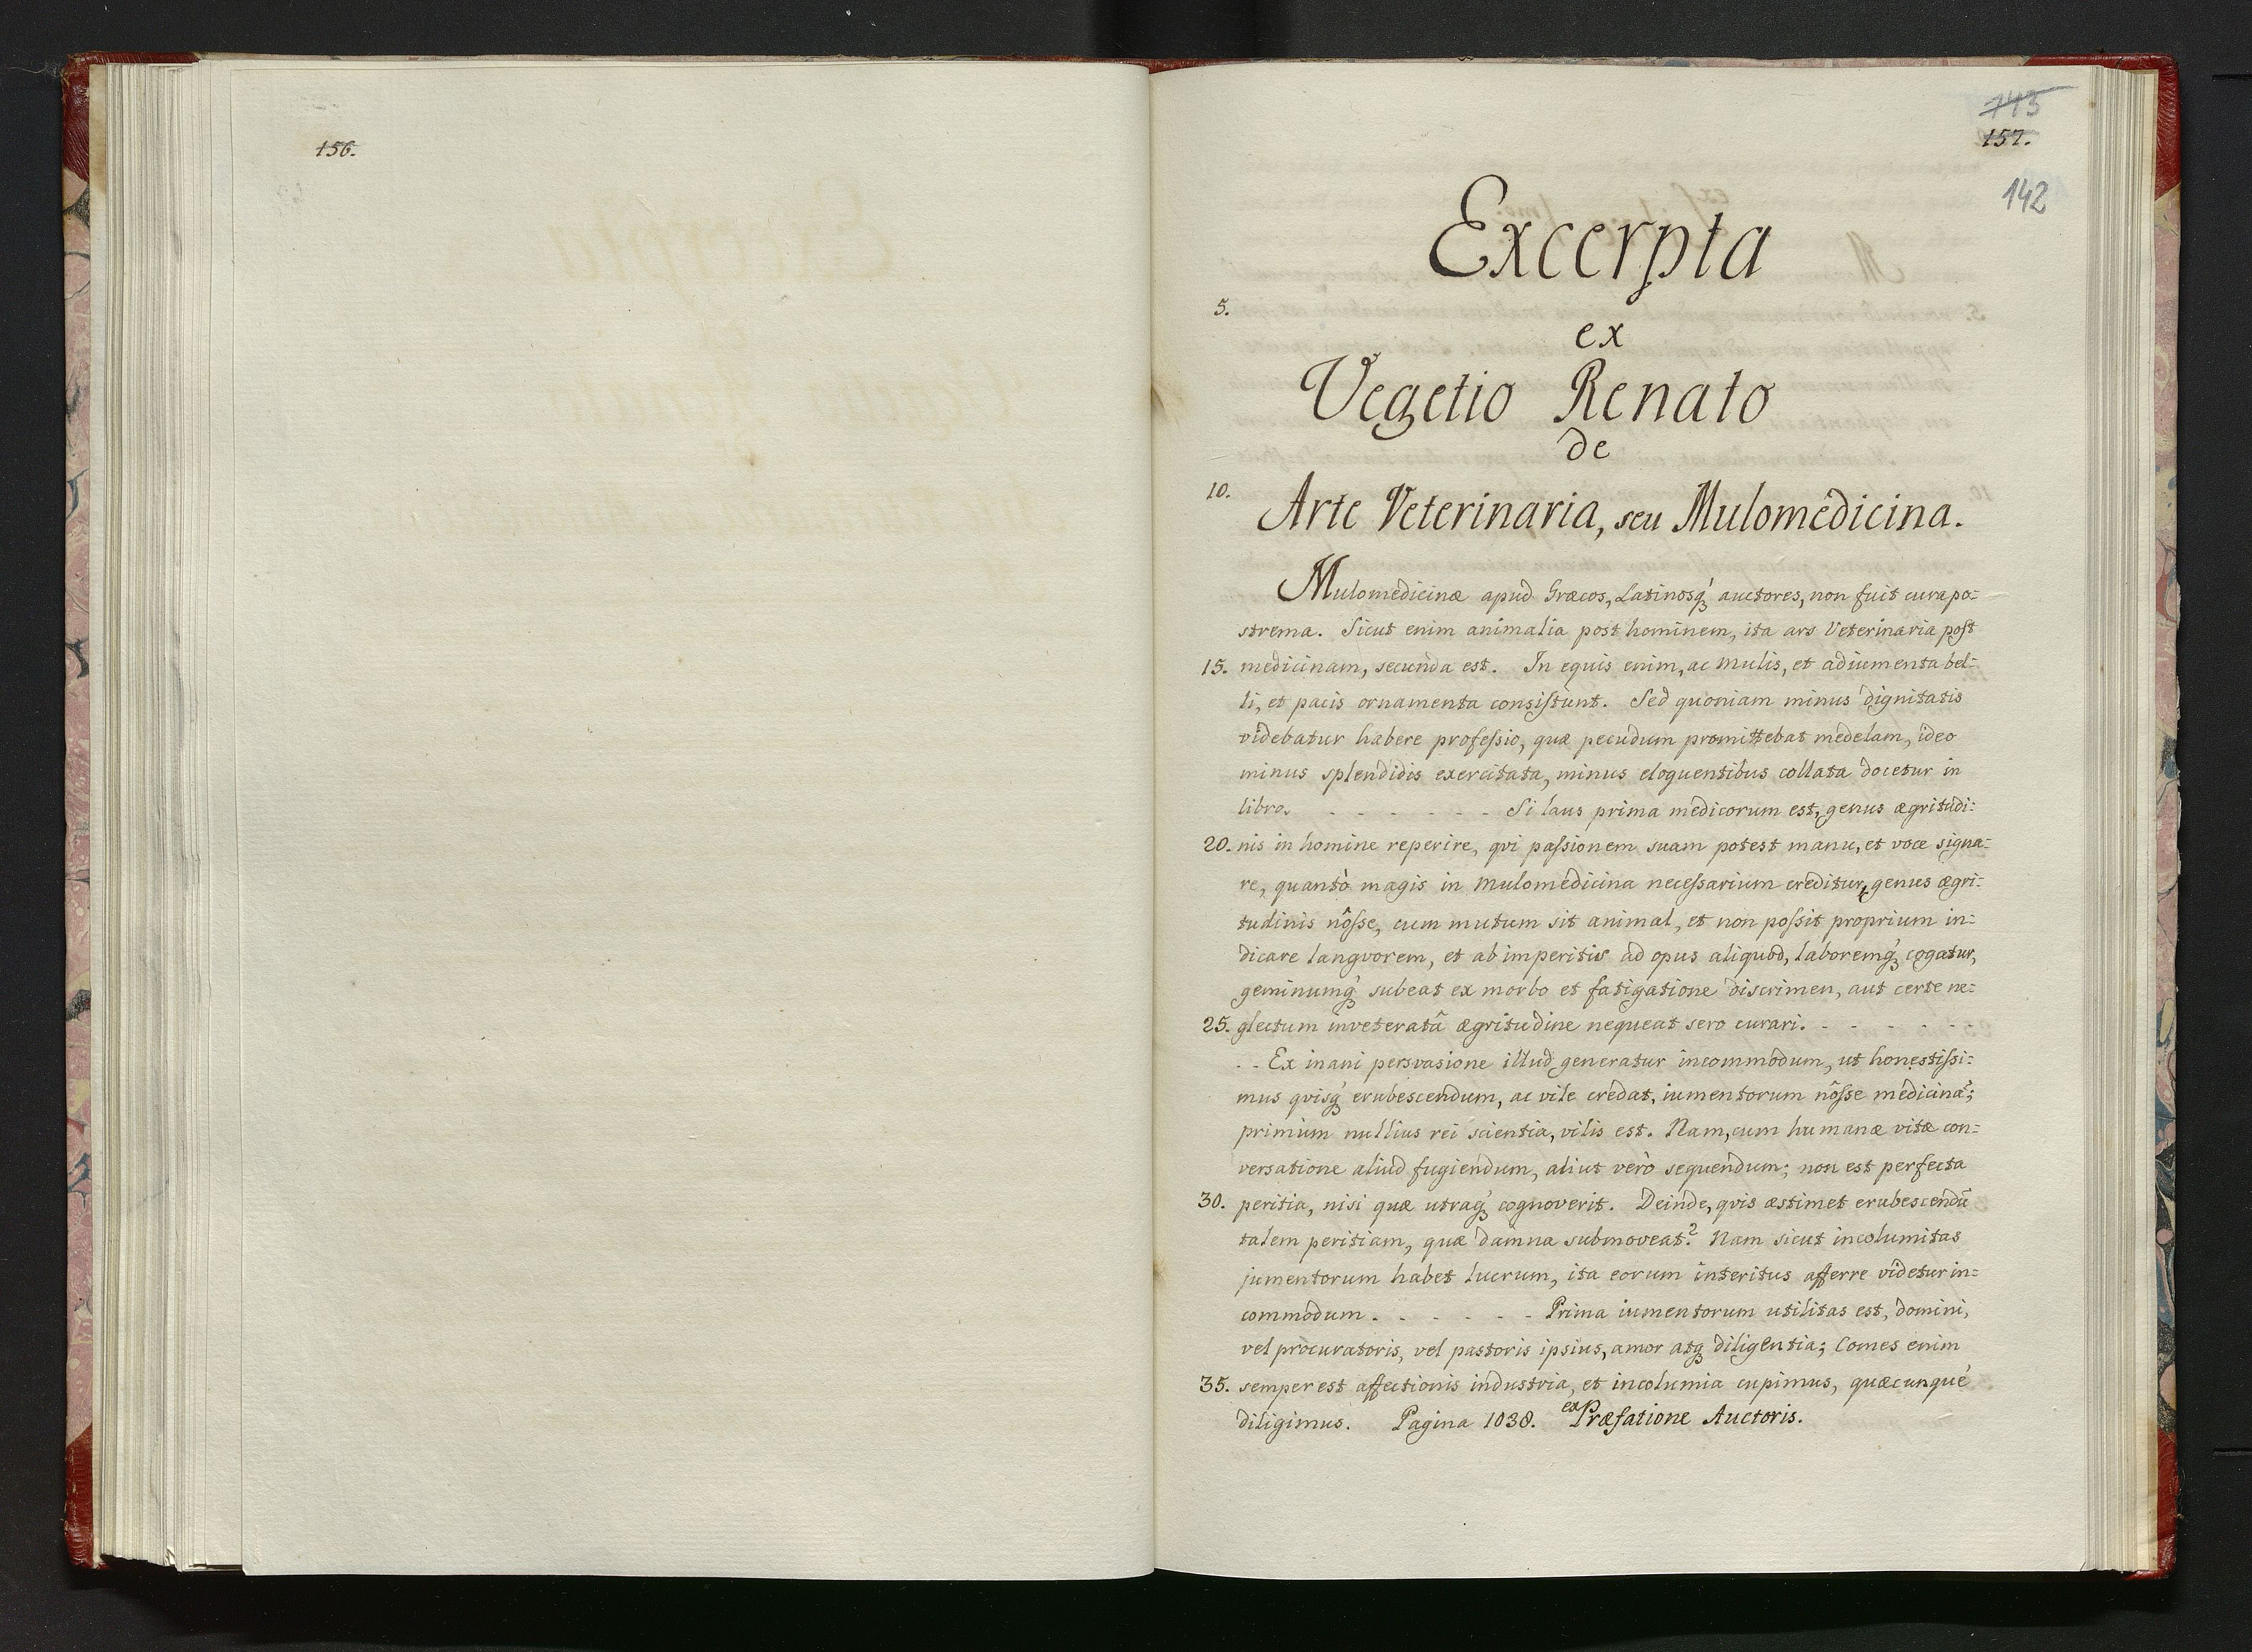 156.
143
157.
142
Excerpta
5.
ex
Vegetio Renato
de
10. Arte Veterinaria, seu Mulomedicina.
Mulomedicinæ apud Græcos, Latinosq́ꝫ auctores, non fuit cura po=
strema. Sicut enim animalia post hominem, ita ars Veterinaria poſt
15. medicinam, secunda est. In equis enim, ac Mulis, et adiumenta bel=
li, et pacis ornamenta consiſtunt. Sed quoniam minus dignitatis
videbatur habere profeſsio, quæ pecudum promittebat medelam, ideo
minus splendidis exercitata, minus eloquentibus collata docetur in
libro. - - - - - - - Si laus prima medicorum est, genus ægritudi=
20. nis in homine reperire, qvi paſsionem suam potest manu, et voce signa=
re, quantò magis in Mulomedicina neceſsarium creditur, genus ægri=
tudinis nôſse, cum mutum sit animal, et non poſsit proprium in=
dicare langvorem, et ab imperitis ad opus aliquod, laboremq́ꝫ cogatur,
geminumq́ꝫ subeat ex morbo et fatigatione discrimen, aut certe ne=
25. glectum inveteratâ ægritudine nequeat sero curari. - - - - -
- - Ex inani persvasione illud generatur incommodum, ut honestiſsi=
mus qvisq́ꝫ erubescendum, ac vile credat, iumentorum nôſse medicinã;
primum nullius rei scientia, vilis est. Nam, cum humanæ vitæ con=
versatione aliud fugiendum, aliut verò sequendum; non est perfecta
30. peritia, nisi quæ utraq́ꝫ cognoverit. Deinde, qvis æstimet erubescendũ
talem peritiam, quæ damna submoveat? Nam sicut incolumitas
jumentorum habet lucrum, ita eorum interitus afferre videtur in=
commodum. - - - - - - Prima iumentorum utilitas est, domini,
vel procuratoris, vel pastoris ipsius, amor atqꝫ diligentia; Comes enim
35. semper est affectionis industria, et incolumia cupimus, quæcunque
diligimus. Pagina 1038. ex Præfatione Auctoris.